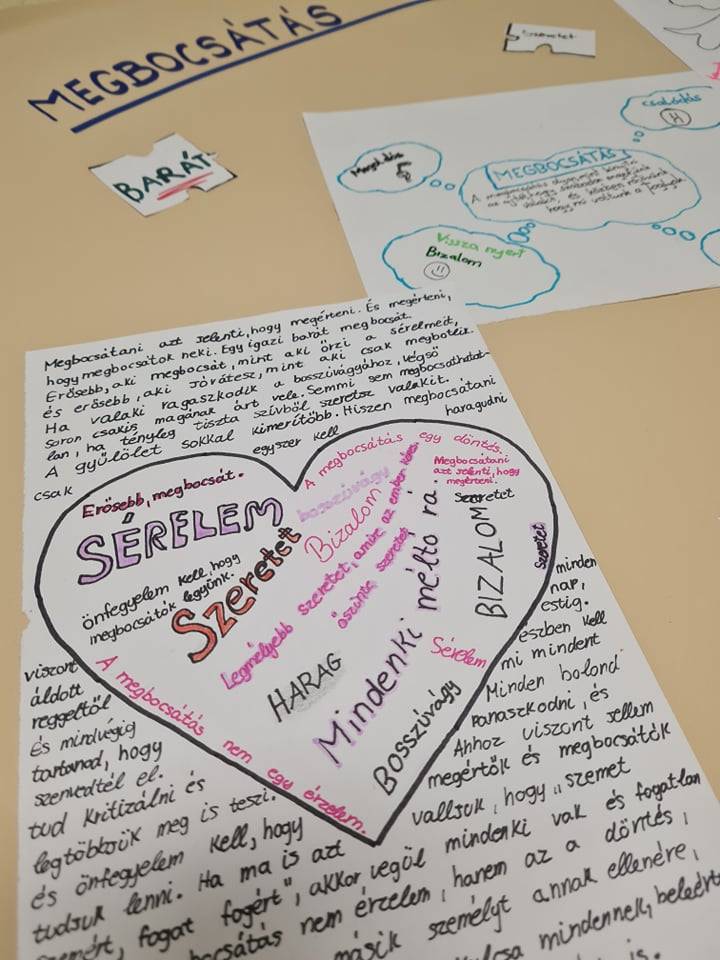 MEGBOCSÁTÁS
Szeretet
BARÁT
Csalódás
MEGBOCSÁTÁS
A megbocsátás olyan, mint kinyitni
az ajtót, hogy szabadon engedjünk
valakit, és közben
hogy mi voltunk a foglyok
Vissza nyert
Bizalom
Megbocsátani azt jelenti, hogy megérteni. És megérteni,
hogy megbocsátok neki. Egy igazi barát megbocsát.
Erősebb, aki megbocsát, mint aki őrzi a sérelmeit,
és erősebb, aki jóvátesz, mint aki csak megbotlik.
Ha valaki ragaszkodik a bosszúvágyához, végső
soron csakis magának árt vele. Semmi sem megbocsáthatat-
lan, ha tényleg tiszta szívből szeretsz valakit.
A gyűlölet sokkal kimerítőbb. Hiszen megbocsátani
csak egyszer kell haragudni
Erősebb, megbocsát.
SÉRELEM
önfegyelem kell, hogy
megbocsátók legyünk.
Szeretet
bosszúvágy
Bizalom
A megbocsátás egy döntés.
Megbocsátani
azt jelenti, hogy
megérteni.
Szeretet
Legmélyebb szeretet, amire az ember képes.
őszinte szeretet
HARAG
Mindenki méltó rá.
BIZALOM
Szeretet
Sérelem
Bosszúvágy
A megbocsátás nem egy érzelem.
viszont minden
áldott nap,
reggeltől estig.
És mindvégig észben kell
tartanod, hogy mi mindent
szenvedtél el. Minden bolond
tud kritizálni és panaszkodni, és
legtöbbjük meg is teszi. Ahhoz viszont jellem
és önfegyelem kell, hogy megértők és megbocsátók
tudjuk lenni. Ha ma is azt valljuk, hogy „szemet
szemért, fogat fogért", akkor végül mindenki vak és fogatlan
bocsátás nem érzelem, hanem az a döntés,
másik személyt annak ellenére,
kulcsa mindennek, beleért
is.